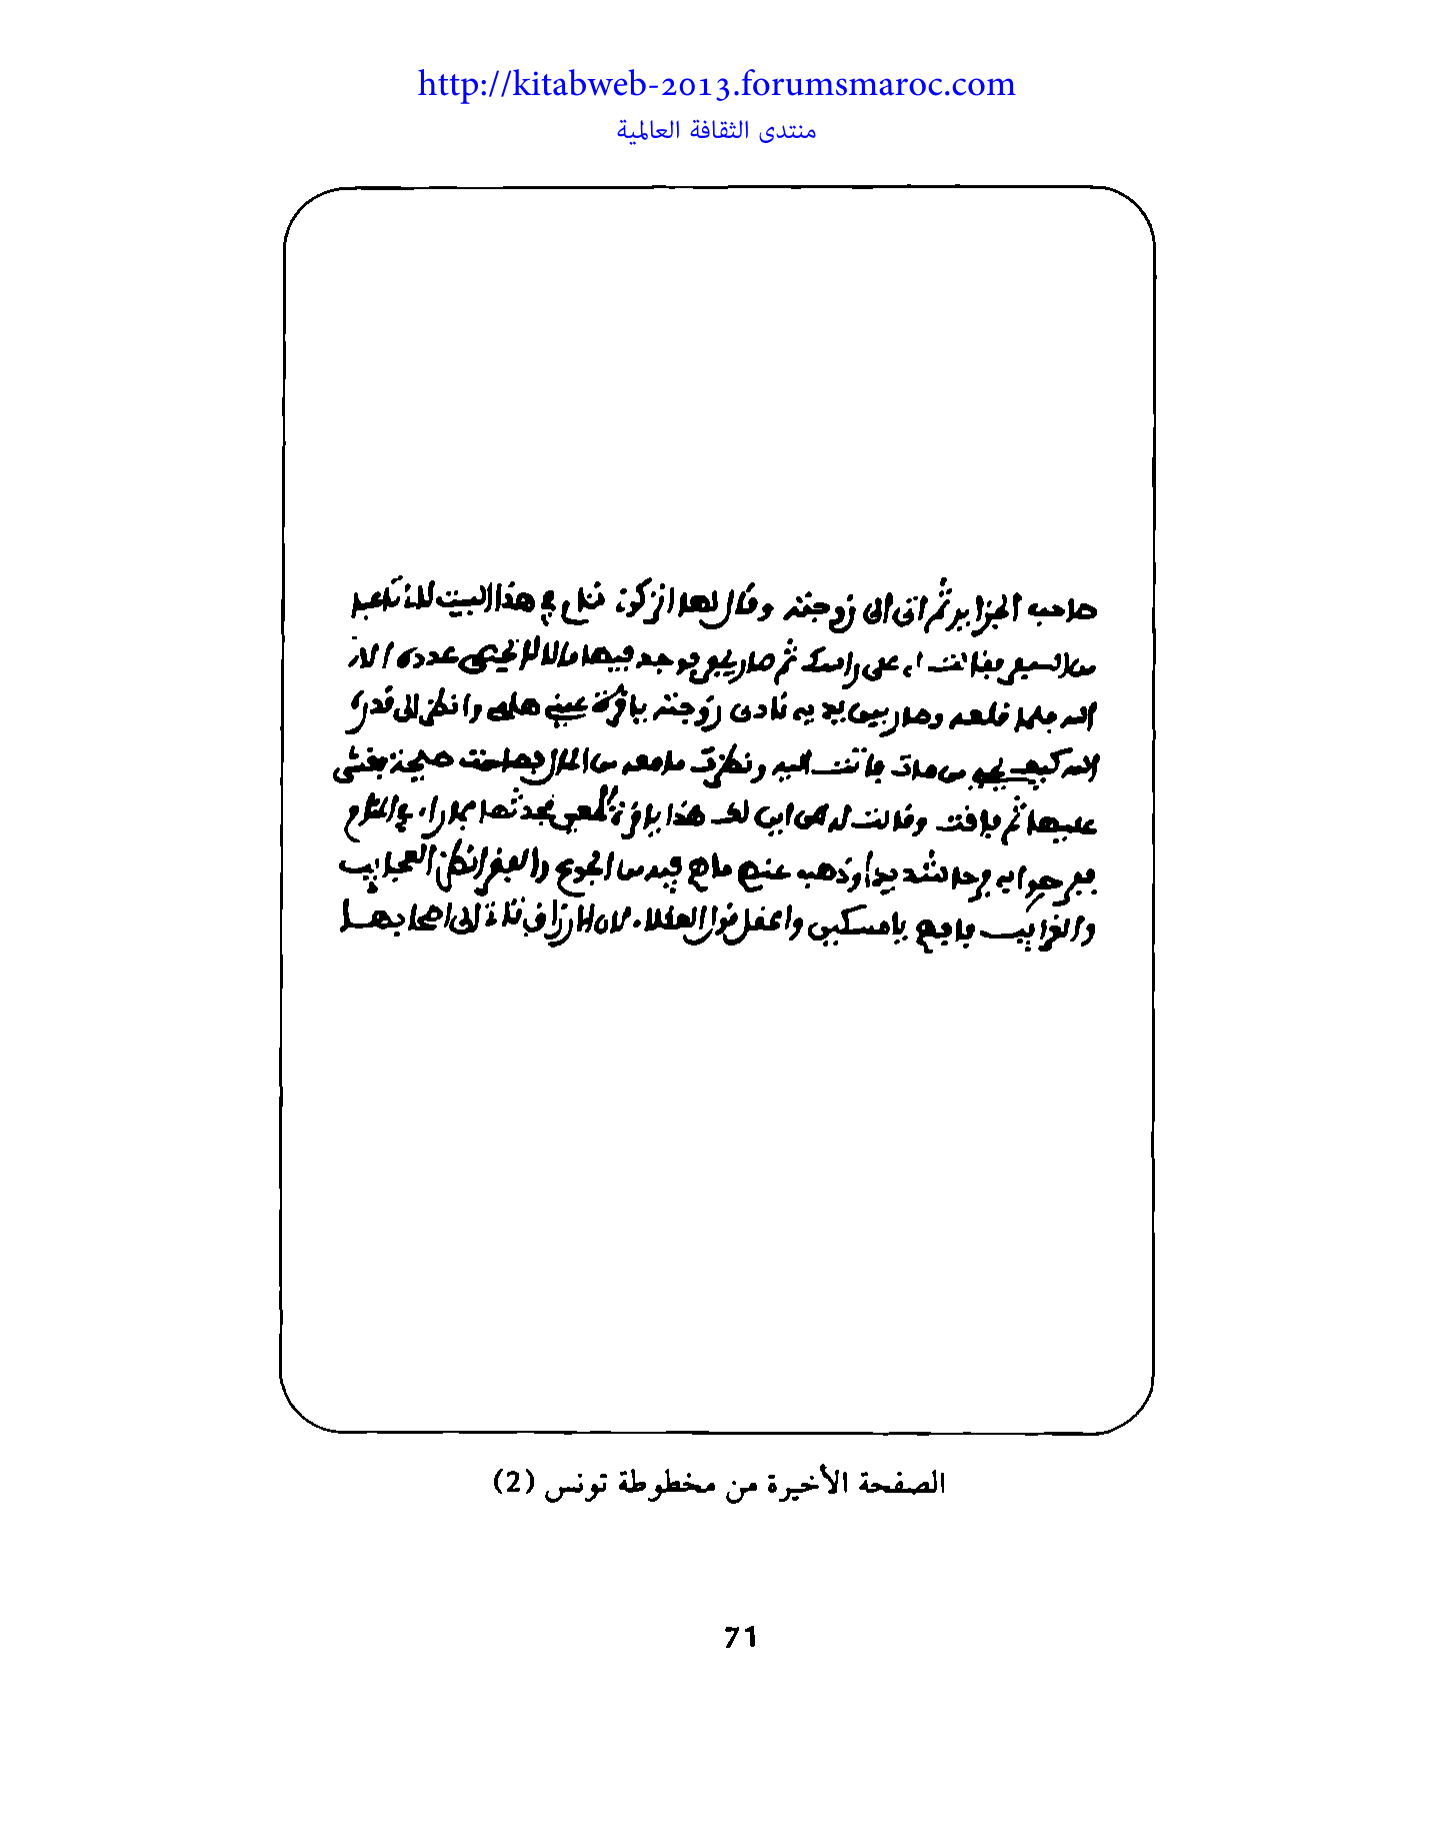 http://kitabweb-2013.forumsmaroc.com
منتدى الثقافة العالمية
صاحب الجزاير ثم اتى الى زوجته وقال لها في هذا البيت
فقالت على راسك ثم صار فوجد فيها مالا لا يحصى عدده الا
الله فلما قلعه وصار بين يديه نادى زوجته يا قرة عيني هلمي وانظر الى قدرة
الله كيف من مات فاتت اليه ونظرت ما معه من المال فصاحت صيحة فغشي
عليها ثم فافت وقالت له من اين لك هذا يا قرة العين فحدثها بما را في المنام
ففرحوا به فرحا شديدا وذهب عنهم ما هم فيه من الجوع والفقر انظر العجايب
والغرايب فافهم يا مسكين واعقل قول العقلاء لان الارزاق تاتي الى اصحابها
الصفحة الأخيرة من مخطوطة تونس (2)
71